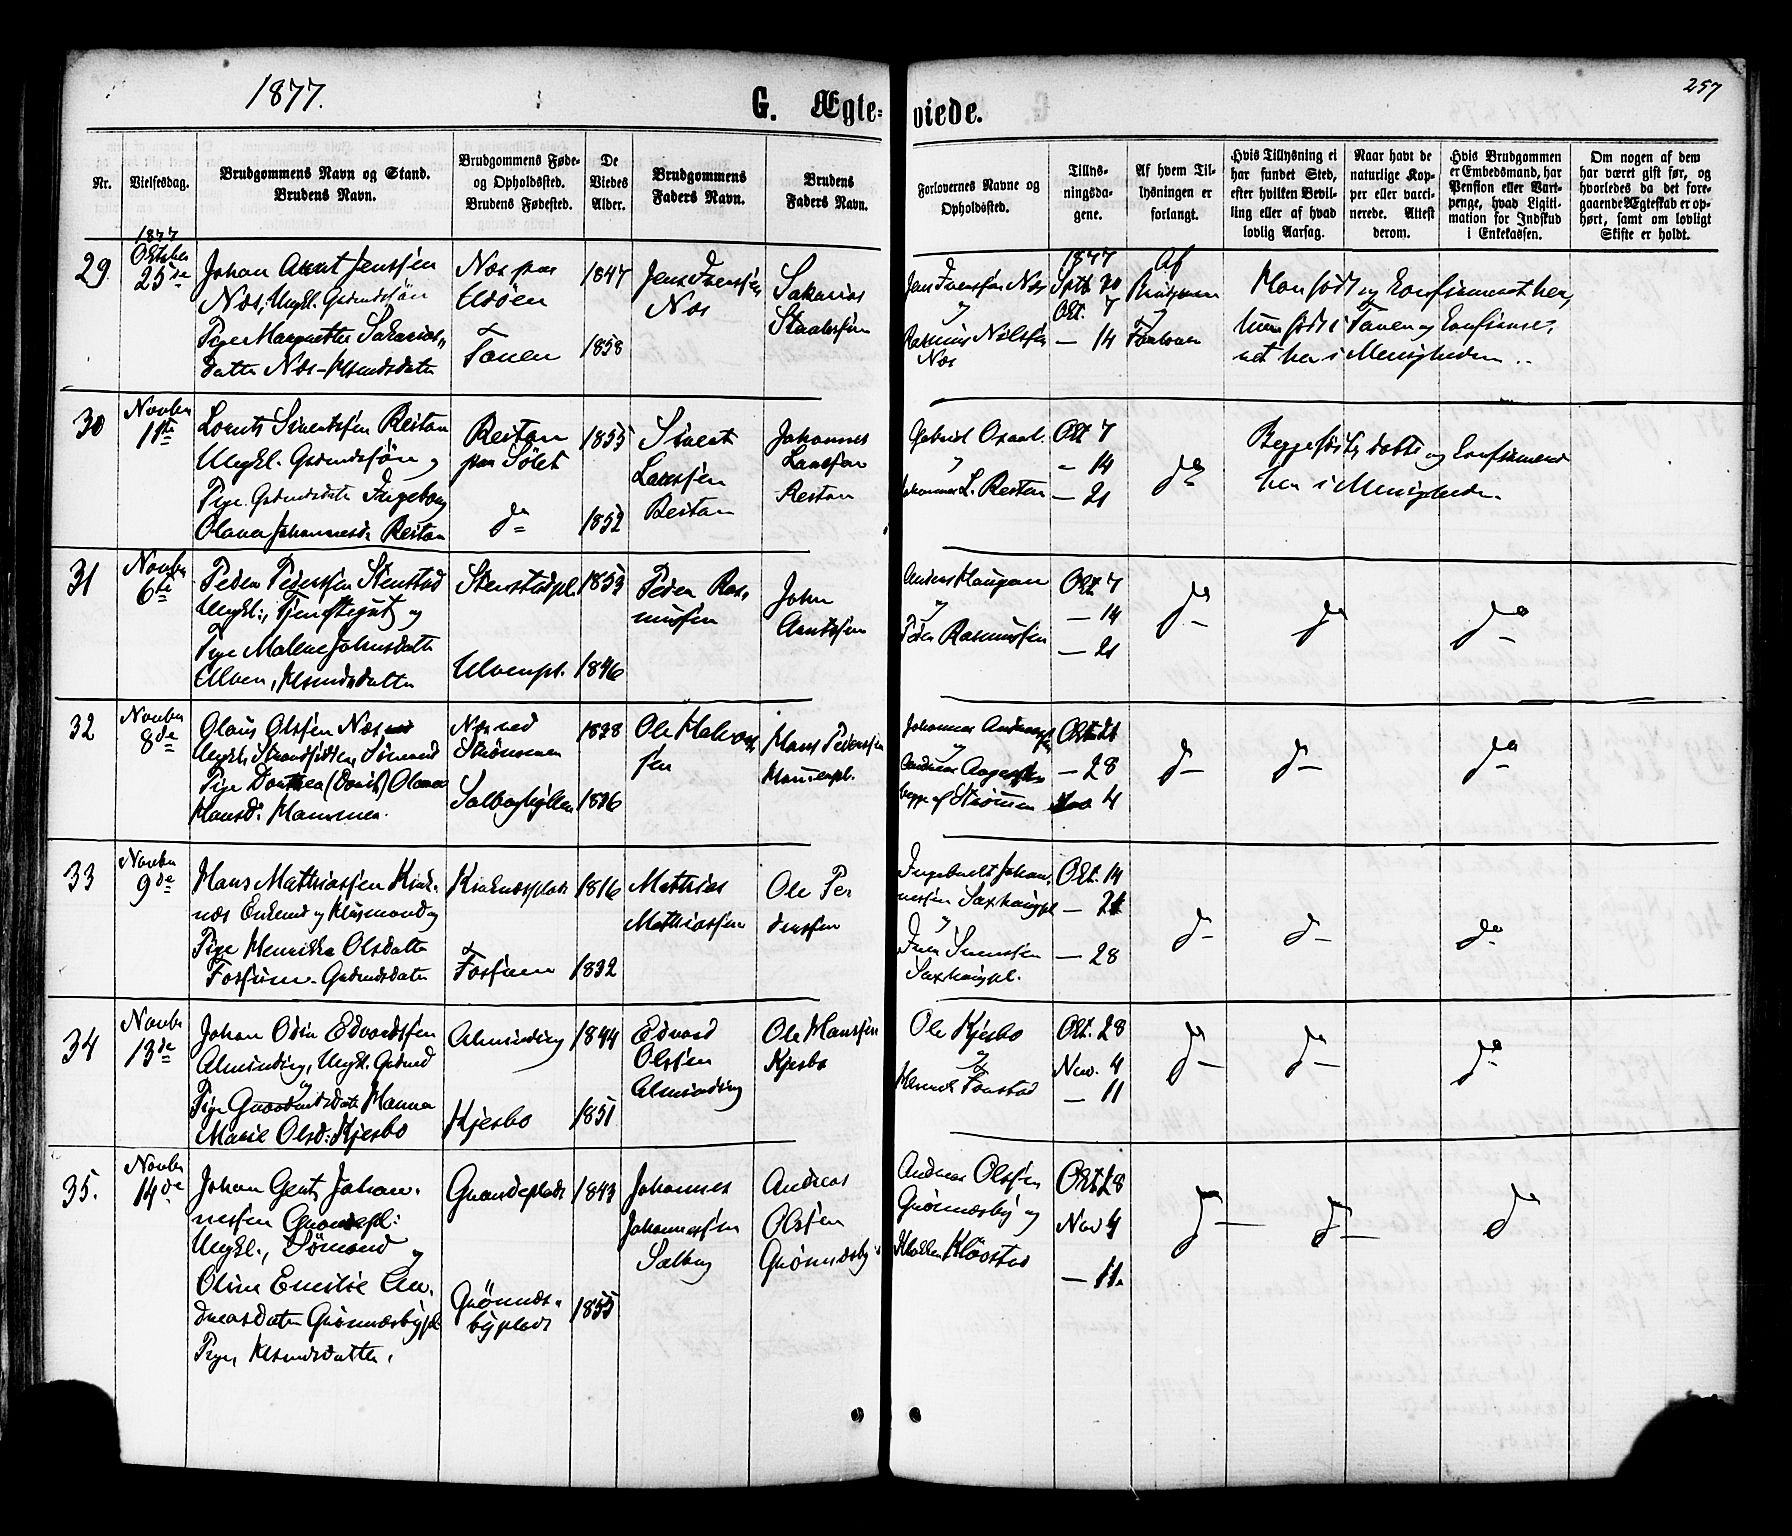 1877.
G. Ægte=
viede.
257
Nr.
Vielsesdag.
Brudgommens Navn og Stand.
Brudens Navn.
Brudgommens Føde-
og Opholdssted.
Brudens Fødested.
De
Viedes
Alder.
Brudgommens
Faders Navn.
Brudens
Faders Navn.
Forlovernes Navne og
Opholdssted.
Tillys-
ningsda-
gene.
Af hvem Til-
lysningen er
forlangt.
Hvis Tillysning ei
har fundet Sted,
efter hvilken Bevil-
ling eller af hvad
lovlig Aarsag.
Naar havt de
naturlige Kop-
per eller vacci-
nerede. Attest
derom.
Hvis Brudgommen
er Embedsmand, har
Pension eller Vart-
penge, hvad Ligiti-
mation for Indskud
i Enkekassen.
Om nogen af dem
har været gift før, og
hvorledes da det fore-
gaaende Ægteskab er op-
hørt, samt om lovligt
Skifte er holdt.
29
1877
Oktober
25de
Johan Arnt Jenssen
Næs, Ungkl. Grdmdssøn
Pige Margrethe Sakarias
datter Næs
Næs paa
1847
Jens Iverssen
Næs
Sakarias
Tanen
1858
Jens Iverssen Næs
Rasmus Nilssen
Næs
1877
Okt. 7
— 14
Af
og
og Confirmeret her,
født i Tanen og Confirme-
ret her i Menigheden
30
Novbr
1ste
Lorents Sivertssen Reitan
Ungkl. Grdmdssøn og
Pige Grdmdsdatr Ingeborg
Olava Johannesd. Reitan
Reitan
paa
1855
do
1852
Sivert
Larssen
Reitan
Johannes
Larssen
Reitan
Gabriel
og
Johannes L. Reitan
Okt 7
— 14
— 21
do
Begge født, døbte og Confirmered
her i Menigheden.
31
Novbr
6te
Peder Pederssen Stenstad
Ungkl., Tjenstegut og
Pige Malene Johnsdatter
Ulven, Husmdsdatter
Stenstadpl.
1853
Ulvenpl.
1846
Peder Ras-
mussen
John
Arntssen
Anders Haugan
og
Peder Rasmussen
Okt 7
— 14
— 21
do
do
do
32
Novbr
8de
Olaus Olssen Næs
Ungkl. Strandsidder, Sømand
Hansd.
Næs ved
Strømmen
Ole
sen
Hans Pederssen
Johannes
og
begge af Strømmen
Okt 21
— 28
4
do
do
do
33
Novbr
9de
Hans Mathiassen Kirk-
næs Enkemd og Husmand og
Pige Henrikka Olsdatter
Forfum Grdmdsdatter
Kirknæsplads
1816
1832
Mathias
Mathiassen
Ole Pe
derssen
Ingebrigt Johan-
nessen Saxhaugpl
og
Iver
Saxhaugpl.
Okt. 14
— 21
— 28
do
do
do
34
Novbr
13de
Johan Odin Edvardssen
Alminding, Ungkl. Grdmd
og
Pige Hanna
Marie Olsd. Kjesbo
Alminding
1844
Kjesbo
1851
Edvard
Olssen
Alminding
Ole Hanssen
Kjesbo
Ole Kjesbo
og
Okt. 28
Nov. 4
— 11
do
do
do
35.
Novbr
14de
Johan Johan-
nessen Grandepl:
Ungkl., Sømand og
Oline Emilie An-
dreasdater Grønnæsbypl
Pige, Husmdsdatter,
Grandeplads
1843
Grønnæs-
byplads
1855
Johannes
Johannessen
Salberg
Andreas
Olssen
Grønnæsby
Andreas Olssen
Grønnæsby og
Okt 28
Nov 4
— 11
do
do
do